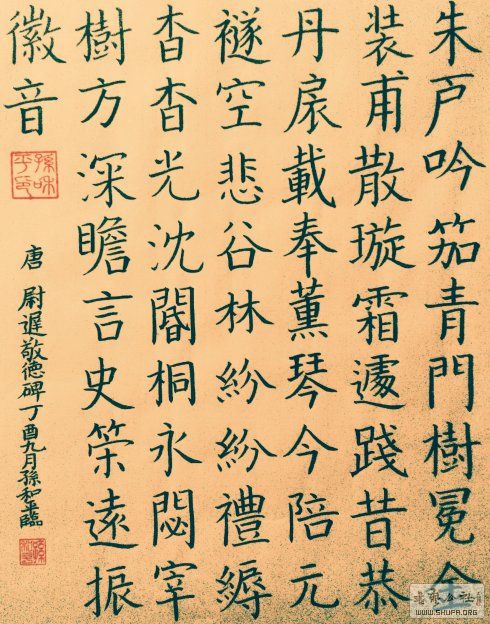 朱戸吟笳青門樹冕金
装甫散璇霜遽踐昔恭
丹扆載奉薫琴今陪元
襚空悲谷林紛紛禮縟
杳杳光沈桐永閟宰
樹方深瞻言史策遠振
徽音
孫和平印
唐 尉遲敬德碑丁酉九月孫和平臨
WWW.SHUFA.ORG